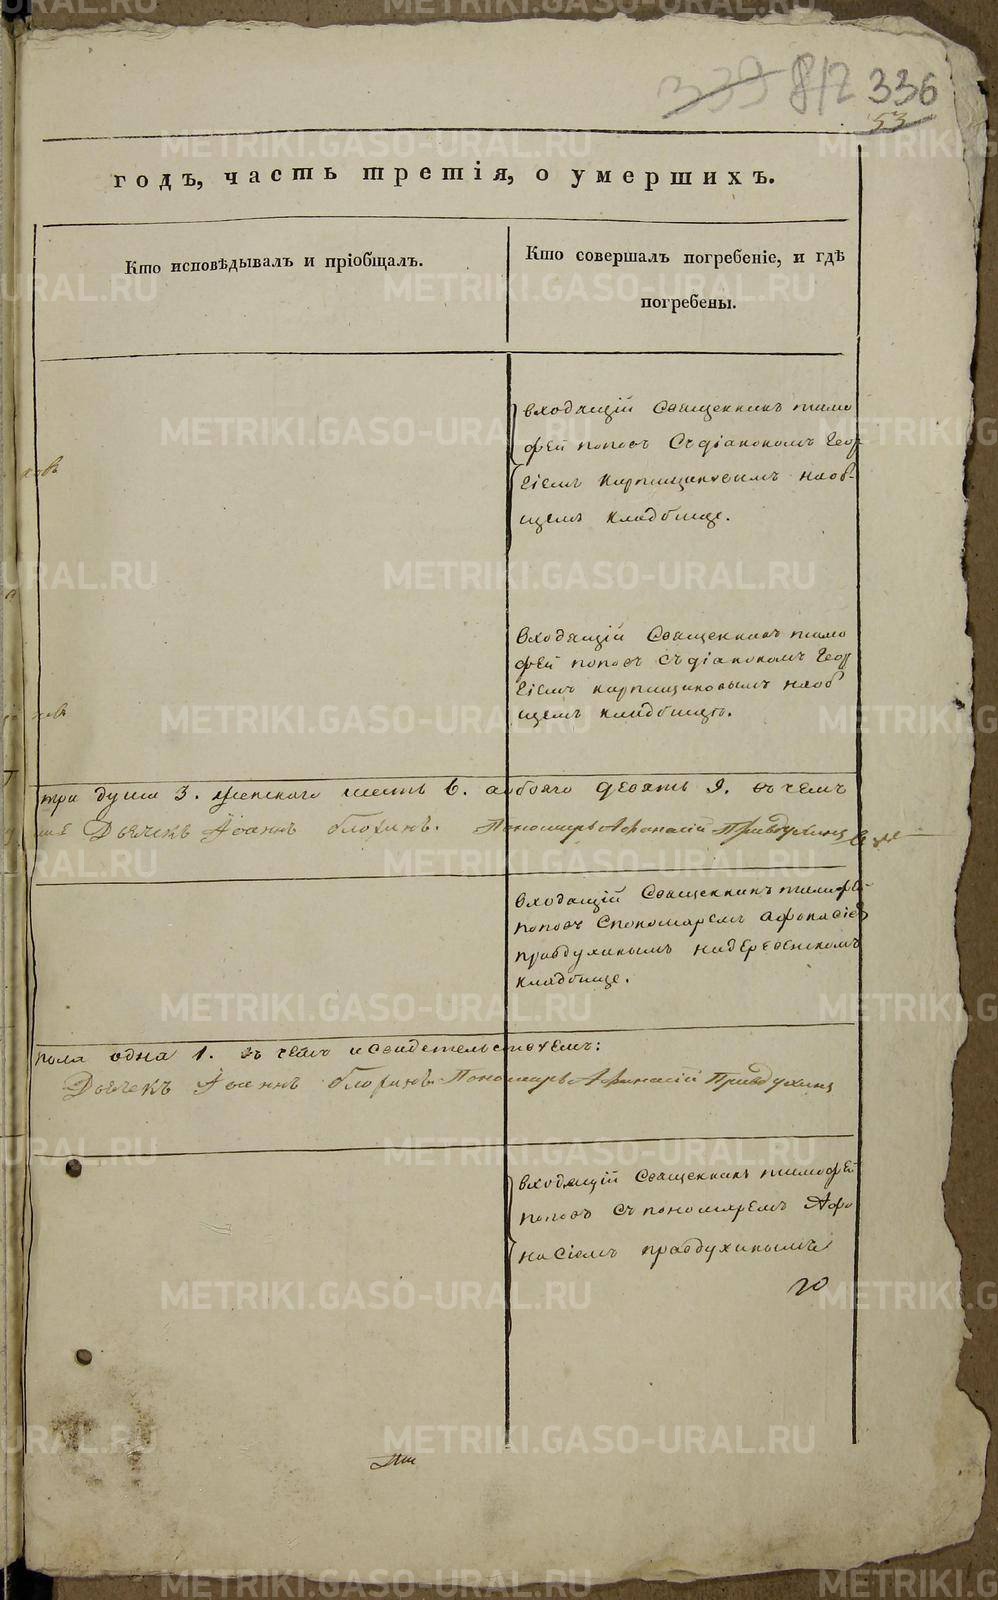 339 812 336
53
годъ, часть третія, о умершихъ.
Кто исповѣдывалъ и пріобщалъ.
Кто совершалъ погребеніе, и гдѣ
погребены.
входящій Священникъ тимо
фей поповъ Съ діакономъ Геор
гіемъ картиниковымъ наоб-
щемъ кладбище.
входящій Священникъ тимо
фей поповъ съ діакономъ Геор
гіемъ наоб
щемъ кладбищъ.
три души 3. женскаго шесть 6. а обоего девять 9. въ чемъ
Дьячекъ Іоаннъ блохинъ. Пономарь Афанасій Правдухинъ
входящій Священникъ тимофей
поповъ Спономаремъ афонасіем
правдухинымъ надеревенскомъ
кладбище.
пола одна 1. въ чемъ исвидетельствуемъ:
Дьячекъ Іоаннъ блохинъ Пономарь Афанасій Правдухинъ
входящій Священникъ тимофей
поповъ Съ пономаремъ Афо
насіемъ правдухинымъ
METRIKI.GASO-URAL.RU